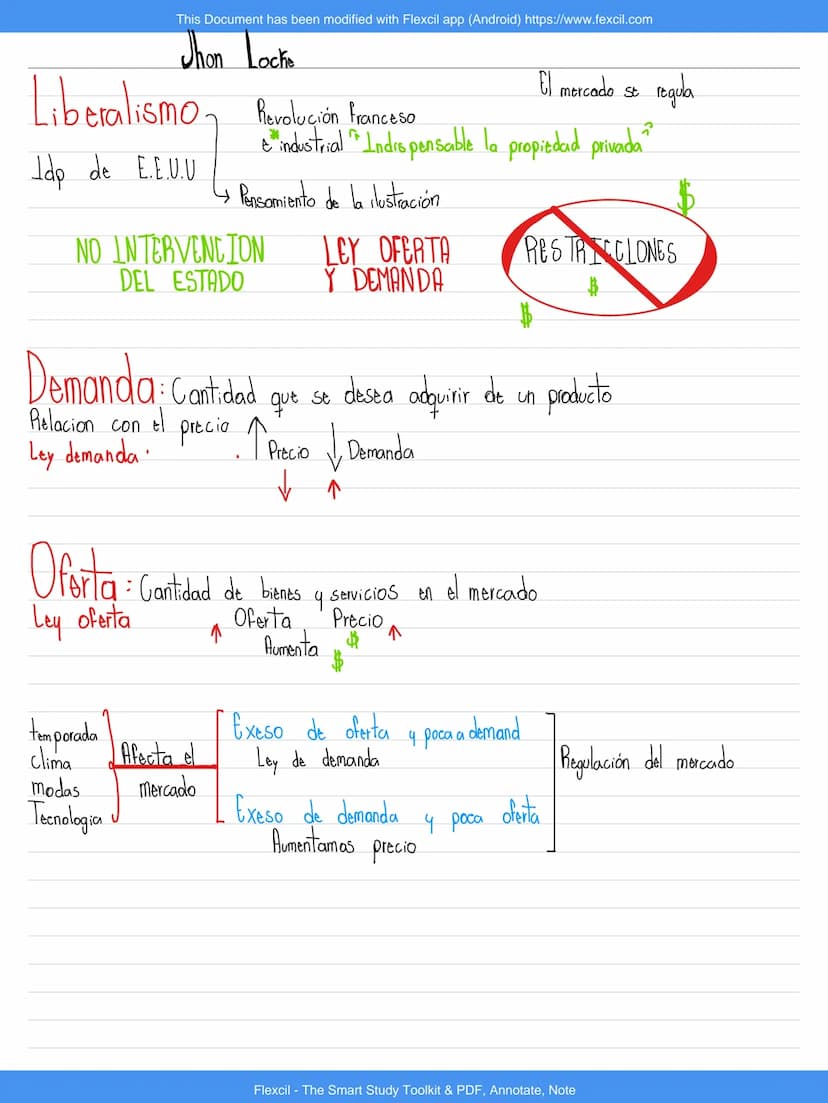 This Document has been modified with Flexcil app (Android) https://www.fexcil.com
Jhon Locke
El mercado se regula
Liberalismo
Revolución franceso
e industrial "Indispensable la propiedad privada"
Idp de E.E.U.U
Pensamiento de la ilustración
NO INTERVENCION
DEL ESTADO
LEY OFERTA
Y DEMANDA
RESTRICCIONES
$
$
$
Demanda: Cantidad que se desea adquirir de un producto
Relacion con el precio ↑ Precio ↓ Demanda
Ley demanda
↓ ↑
Oferta: Cantidad de bienes y servicios en el mercado
Ley oferta ↑ Oferta Precio ↑
Aumenta $ $
temporada
Clima
modas
Tecnologia
Afecta el
mercado
Exeso de oferta y poca a demand
Ley de demanda
Exeso de demanda y poca oferta
Aumentamos precio
Regulación del mercado
Flexcil - The Smart Study Toolkit & PDF, Annotate, Note